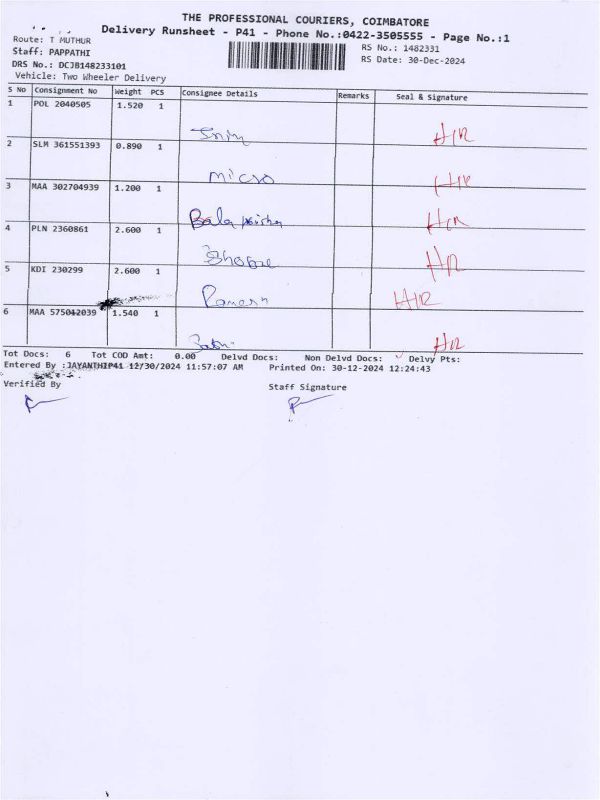 THE PROFESSIONAL COURIERS, COIMBATORE
Delivery Runsheet - P41 - Phone No.:0422-3505555 - Page No.:1
Route: T MUTHUR
RS No.: 1482331
Staff: PAPPATHI
RS Date: 30-Dec-2024
DRS No.: DCJB148233101
Vehicle: Two Wheeler Delivery
S No Consignment No Weight PCS Consignee Details Remarks Seal & Signature
1 POL 2040505 1.520 1
2 SLM 361551393 0.890 1
micro
3 MAA 302704939 1.200 1
Bala
4 PLN 2360861 2.600 1
5 KDI 230299 2.600 1
6 MAA 575012039 1.540 1
Tot Docs: 6 Tot COD Amt: 0.00 Delvd Docs: Non Delvd Docs: Delvy Pts:
Entered By :JAYANTHIP41 12/30/2024 11:57:07 AM Printed On: 30-12-2024 12:24:43
Verified By Staff Signature